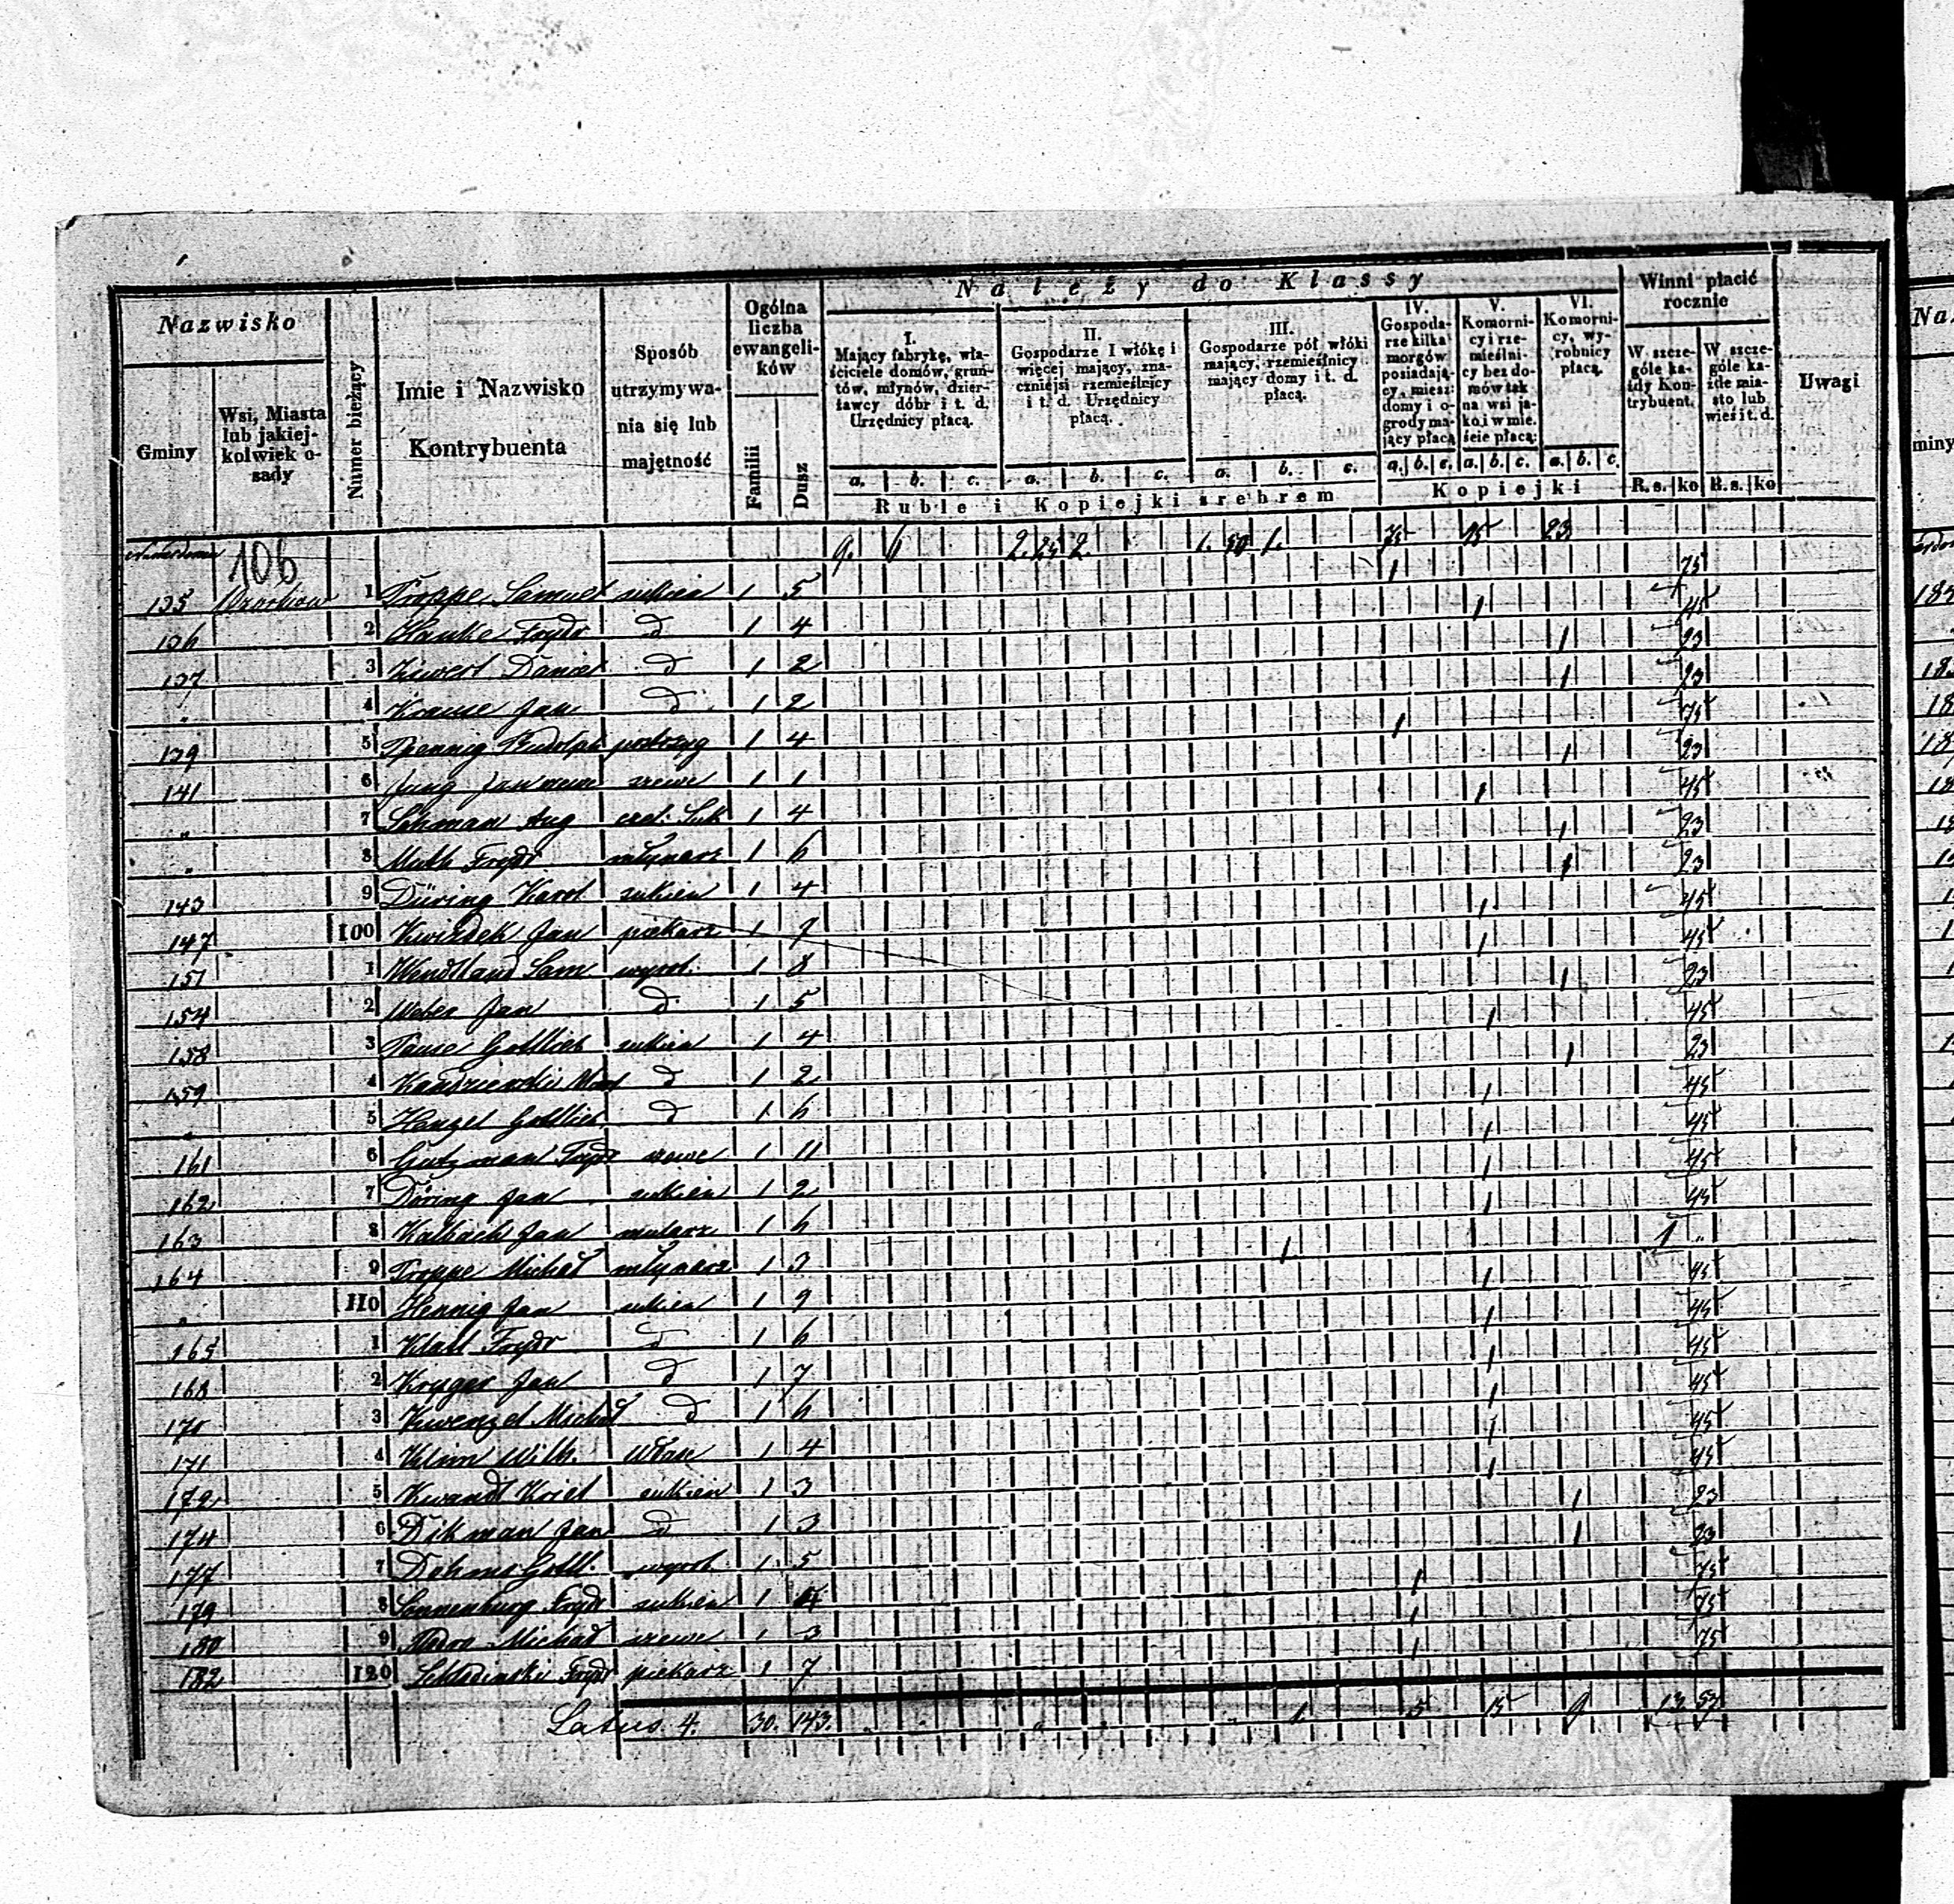 Nazwisko
Gminy
Wsi, Miasta lub jakiej-kolwiek o-sady
Numer bieżący
Imie i Nazwisko Kontrybuenta
Sposób utrzymywa-nia się lub majętność
Ogólna liczba ewangeli-ków
Familii
Dusz
Należy do Klassy
I. Mający fabrykę, wła-ściciele domów, grun-tów, młynów, dzier-żawcy dóbr i t. d. Urzędnicy płacą.
II. Gospodarze I włókę i więcej mający, zna-czniejsi rzemieślnicy i t. d. Urzędnicy płacą.
III. Gospodarze pół włóki mający, rzemieślnicy mający domy i t. d. płacą.
IV. Gospoda-rze kilka morgów posiadają-cy, miesz: domy i o-grody ma-jący płacą
V. Komorni-cy i rze-mieślni-cy bez do-mów tak na wsi ja-ko i w mie-ście płacą:
VI. Komorni-cy, wy-robnicy płacą.
Winni płacić rocznie
W szcze-góle ka-żdy Kon-trybuent.
W szcze-góle ka-żde mia-sto lub wieś i t. d.
Uwagi
a. b. c. a. b. c. a. b. c. a. b. c. a. b. c. a. b. c.
Ruble i Kopiejki srebrem
Kopiejki
R. s. ko R. s. ko
106 9. 6 2. 25 2. 1. 50 1. 75 45 23
135 1 Troppe Samuel sukien 1 5 1 75
136 2 Hanke Frydr d 1 4 1 45
137 3 Kiwert Daniel d 1 2 1 23
" 4 Krause Jan d 1 2 1 23
139 5 Pfennig Rudolph postrzyg 1 4 1 75
141 6 Jung Jan szewc 1 1 1 23
" 7 Lehman Aug czel. Suk 1 4 1 45
" 8 Muth Frydr młynarz 1 6 1 23
143 9 Düring Karol sukien 1 4 1 23
147 100 Kwiadek Jan piekarz 1 1 45
151 1 Wendland Sam wyrob. 1 8 1 45
154 2 Weber Jan d 1 5 1 23
158 3 Gottlieb sukien 1 4 1 45
159 4 d 1 2 1 23
" 5 Henzel Gottlieb d 1 6 1 45
161 6 Gutzman Frydr szewc 1 11 1 45
162 7 Döring Jan sukien 1 2 1 45
163 8 Kalbach Jan mularz 1 6 1 45
164 9 Troppe Michał młynarz 1 3 1 1 "
" 110 Hennig Jan sukien 1 9 1 45
165 1 Klatt Frydr d 1 6 1 45
168 2 Kryger Jan d 1 7 1 45
170 3 Kwenzel Michał d 1 6 1 45
171 4 Klim Wilh. 1 4 1 45
172 5 Kwandt sukien 1 3 1 45
174 6 Dikman Jan d 1 3 1 23
177 7 Dehms Gottl. wyrob. 1 5 1 23
179 8 Sonnenburg Frydr sukien 1 4 1 75
180 9 Michał szewc 1 3 1 75
182 120 Frydr piekarz 1 7 1 75
Latus 4. 30. 143. 1 5 15 9 13. 57